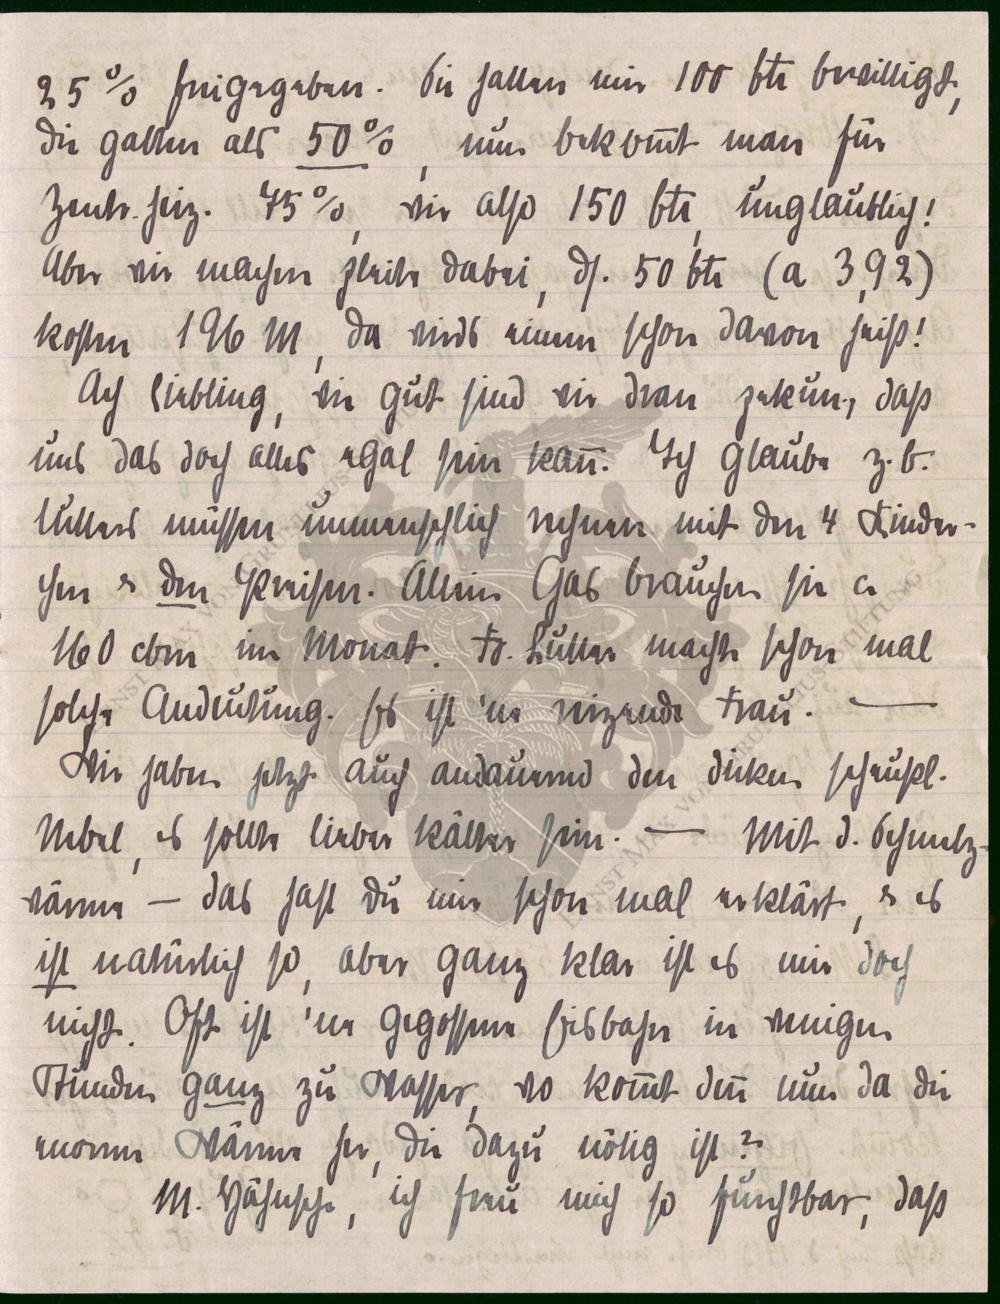 25 % freigegeben. Sie hatten mir 100 Ctr bewilligt,
die galten als 50 %, nun bekom̅t man für
Zentr. heiz. 75 %, wir also 150 Ctr, unglaublich!
Aber wir machen pleite dabei, d. h. 50 Ctr (a 3,92)
kosten 196 M, da wirds einem schon davon heiß!
Ach Liebling, wie gut sind wir dran pekun., daß
uns das doch alles egal sein kan̅. Ich glaube z. b.
Lutters müssen unmenschlich rechnen mit den 4 Kinder-
chen & den Preisen. Allein Gas brauchen sie ca
160 cbm im Monat. Fr. Lutter machte schon mal
solche Andeutung. Es ist 'ne reizende Frau. —
Wir haben jetzt auch andauernd den dicken scheußl.
Nebel, es sollte lieber kälter sein. — Mit d. Schmelz-
wärme — das hast Du mir schon mal erklärt, & es
ist natürlich so, aber ganz klar ist es mir doch
nicht. Oft ist 'ne gegossene Eisbahn in wenigen
Stunden ganz zu Wasser, wo kom̅t den̅ nun da die
enorme Wärme her, die dazu nötig ist?
M. Hähnsche, ich freu mich so furchtbar, daß
ERNST MAX VON GRUNELIUS-STIFTUNG
ERNST MAX VON GRUNELIUS-STIFTUNG